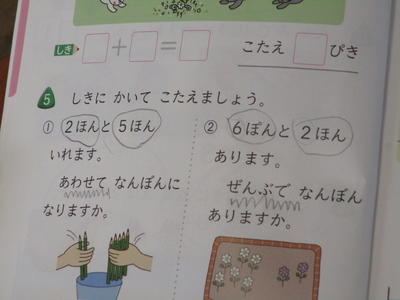 しき □+□=□ こたえ □ ぴき
5 しきに かいて こたえましょう。
① 2ほんと 5ほん
いれます。
あわせて なんぼんに
なりますか。
② 6ぽんと 2ほん
あります。
ぜんぶで なんぼん
ありますか。